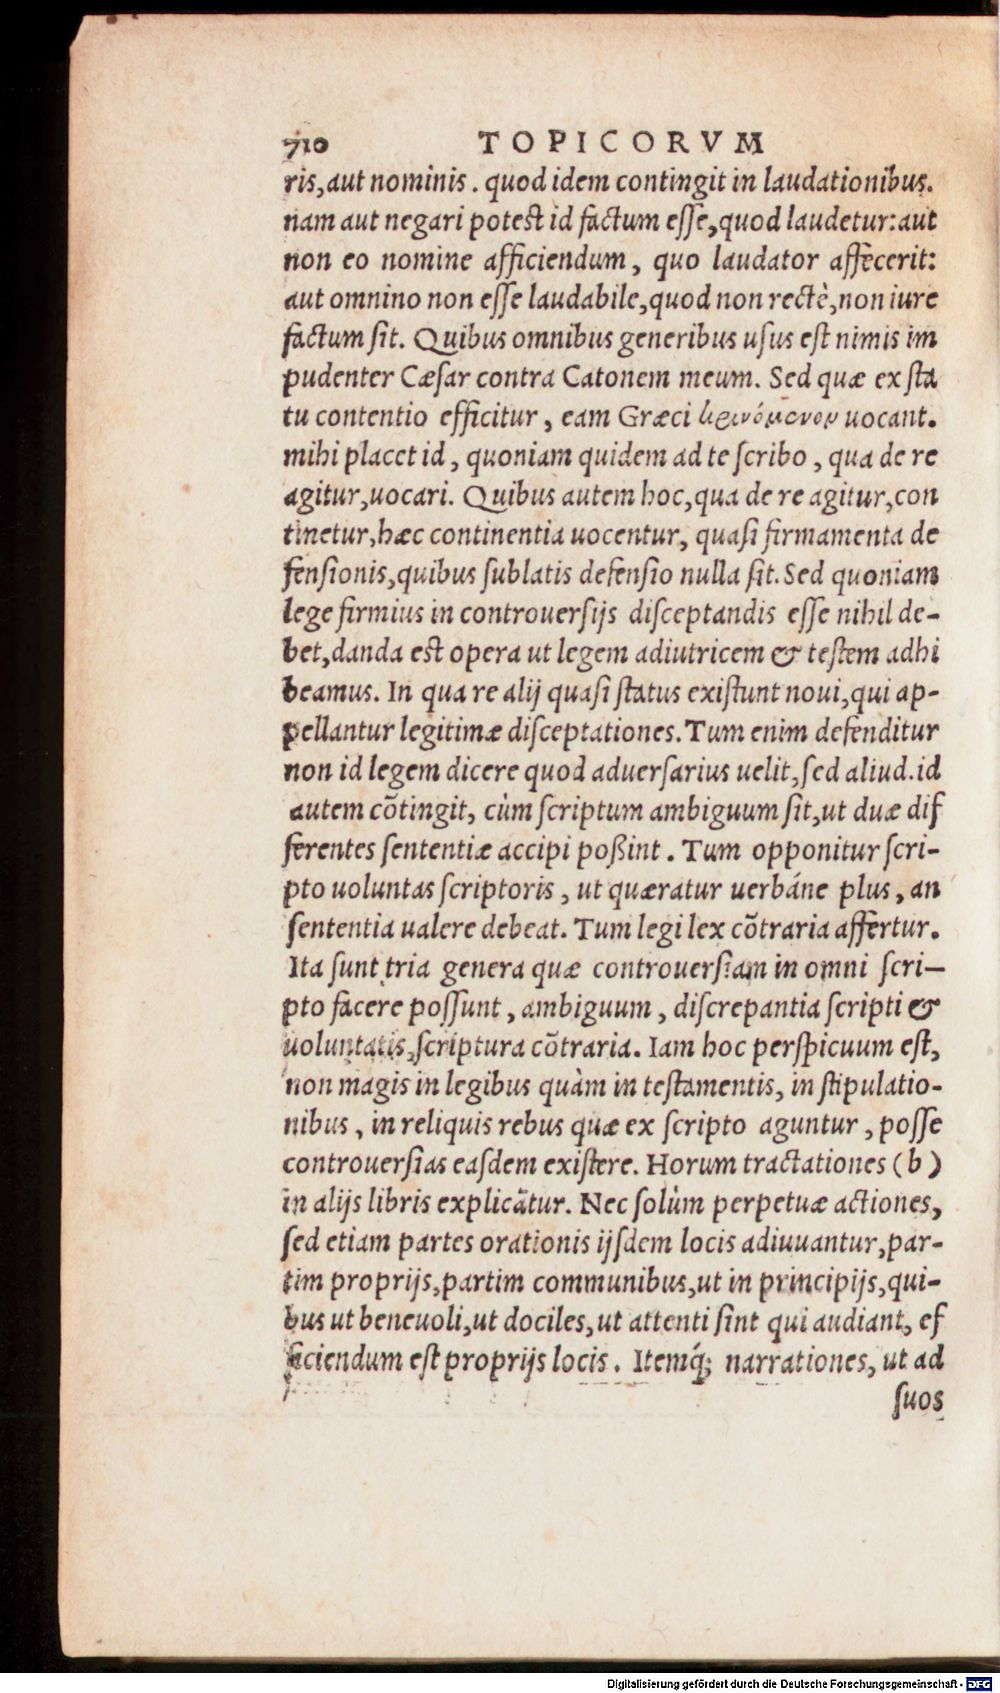 710 TOPICORVM
ris, aut nominis. quod idem contingit in laudationibus.
nam aut negari potest id factum esse, quod laudetur: aut
non eo nomine afficiendum, quo laudator affecerit:
aut omnino non esse laudabile, quod non rectè, non iure
factum sit. Quibus omnibus generibus usus est nimis im
pudenter Cæsar contra Catonem meum. Sed quæ ex sta
tu contentio efficitur, eam Græci κρινόμενον uocant.
mihi placet id, quoniam quidem ad te scribo, qua de re
agitur, uocari. Quibus autem hoc, qua de re agitur, con
tinetur, hæc continentia uocentur, quasi firmamenta de
fensionis, quibus sublatis defensio nulla sit. Sed quoniam
lege firmius in controuersijs disceptandis esse nihil de-
bet, danda est opera ut legem adiutricem & testem adhi
beamus. In qua re alij quasi status existunt noui, qui ap-
pellantur legitimæ disceptationes. Tum enim defenditur
non id legem dicere quod aduersarius uelit, sed aliud. id
autem cõtingit, cùm scriptum ambiguum sit, ut duæ dif
ferentes sententiæ accipi poßint. Tum opponitur scri-
pto uoluntas scriptoris, ut quæratur uerbáne plus, an
sententia ualere debeat. Tum legi lex cõtraria affertur.
Ita sunt tria genera quæ controuersiam in omni scri-
pto facere possunt, ambiguum, discrepantia scripti &
uoluntatis, scriptura cõtraria. Iam hoc perspicuum est,
non magis in legibus quàm in testamentis, in stipulatio-
nibus, in reliquis rebus quæ ex scripto aguntur, posse
controuersias easdem existere. Horum tractationes (b)
in alijs libris explicãtur. Nec solùm perpetuæ actiones,
sed etiam partes orationis ijsdem locis adiuuantur, par-
tim proprijs, partim communibus, ut in principijs, qui-
bus ut beneuoli, ut dociles, ut attenti sint qui audiant, ef
ficiendum est proprijs locis. Itemq́; narrationes, ut ad
suos
Digitalisierung gefördert durch die Deutsche Forschungsgemeinschaft - DFG